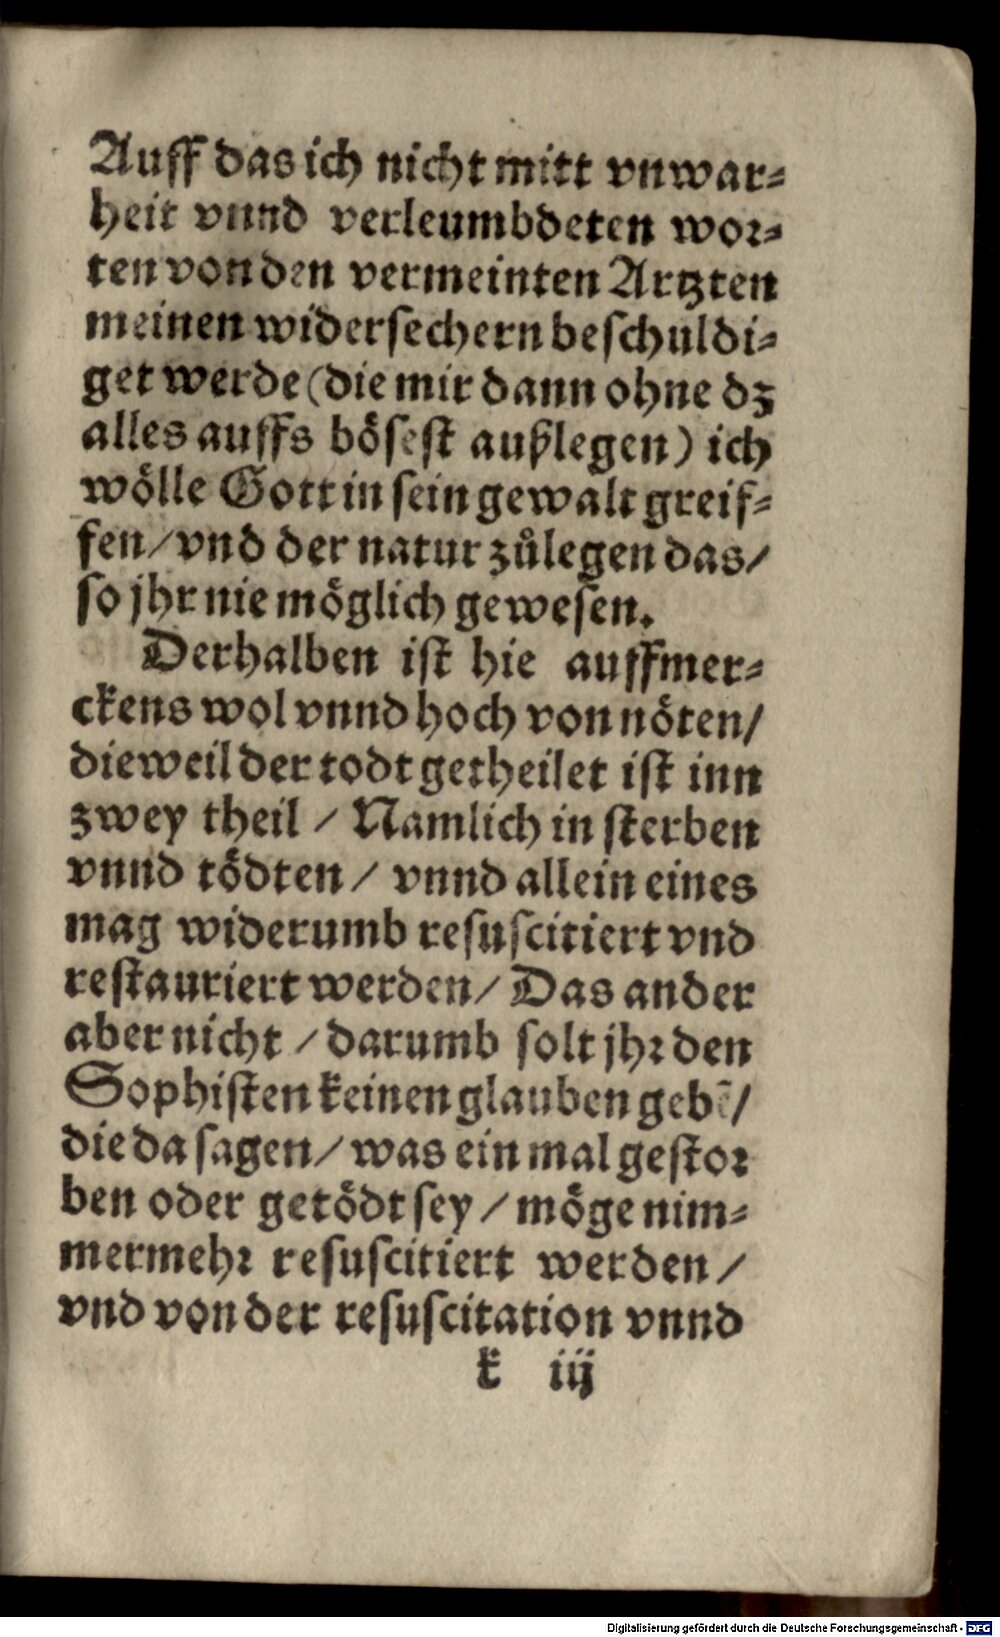 Auff das ich nicht mitt vnwar⸗
heit vnnd verleumbdeten wor⸗
ten von den vermeinten Artzten
meinen widersechern beschuldi⸗
get werde (die mir dann ohne dz
alles auffs bösest außlegen) ich
wölle Gott in sein gewalt greif⸗
fen / vnd der natur zůlegen das /
so jhr nie möglich gewesen.
Derhalben ist hie auffmer⸗
ckens wol vnnd hoch von nöten /
dieweil der todt getheilet ist inn
zwey theil / Namlich in sterben
vnnd tödten / vnnd allein eines
mag widerumb resuscitiert vnd
restauriert werden / Das ander
aber nicht / darumb solt jhr den
Sophisten keinen glauben gebē /
die da sagen / was ein mal gestor
ben oder getödt sey / möge nim⸗
mermehr resuscitiert werden /
vnd von der resuscitation vnnd
k iij
Digitalisierung gefördert durch die Deutsche Forschungsgemeinschaft - DFG